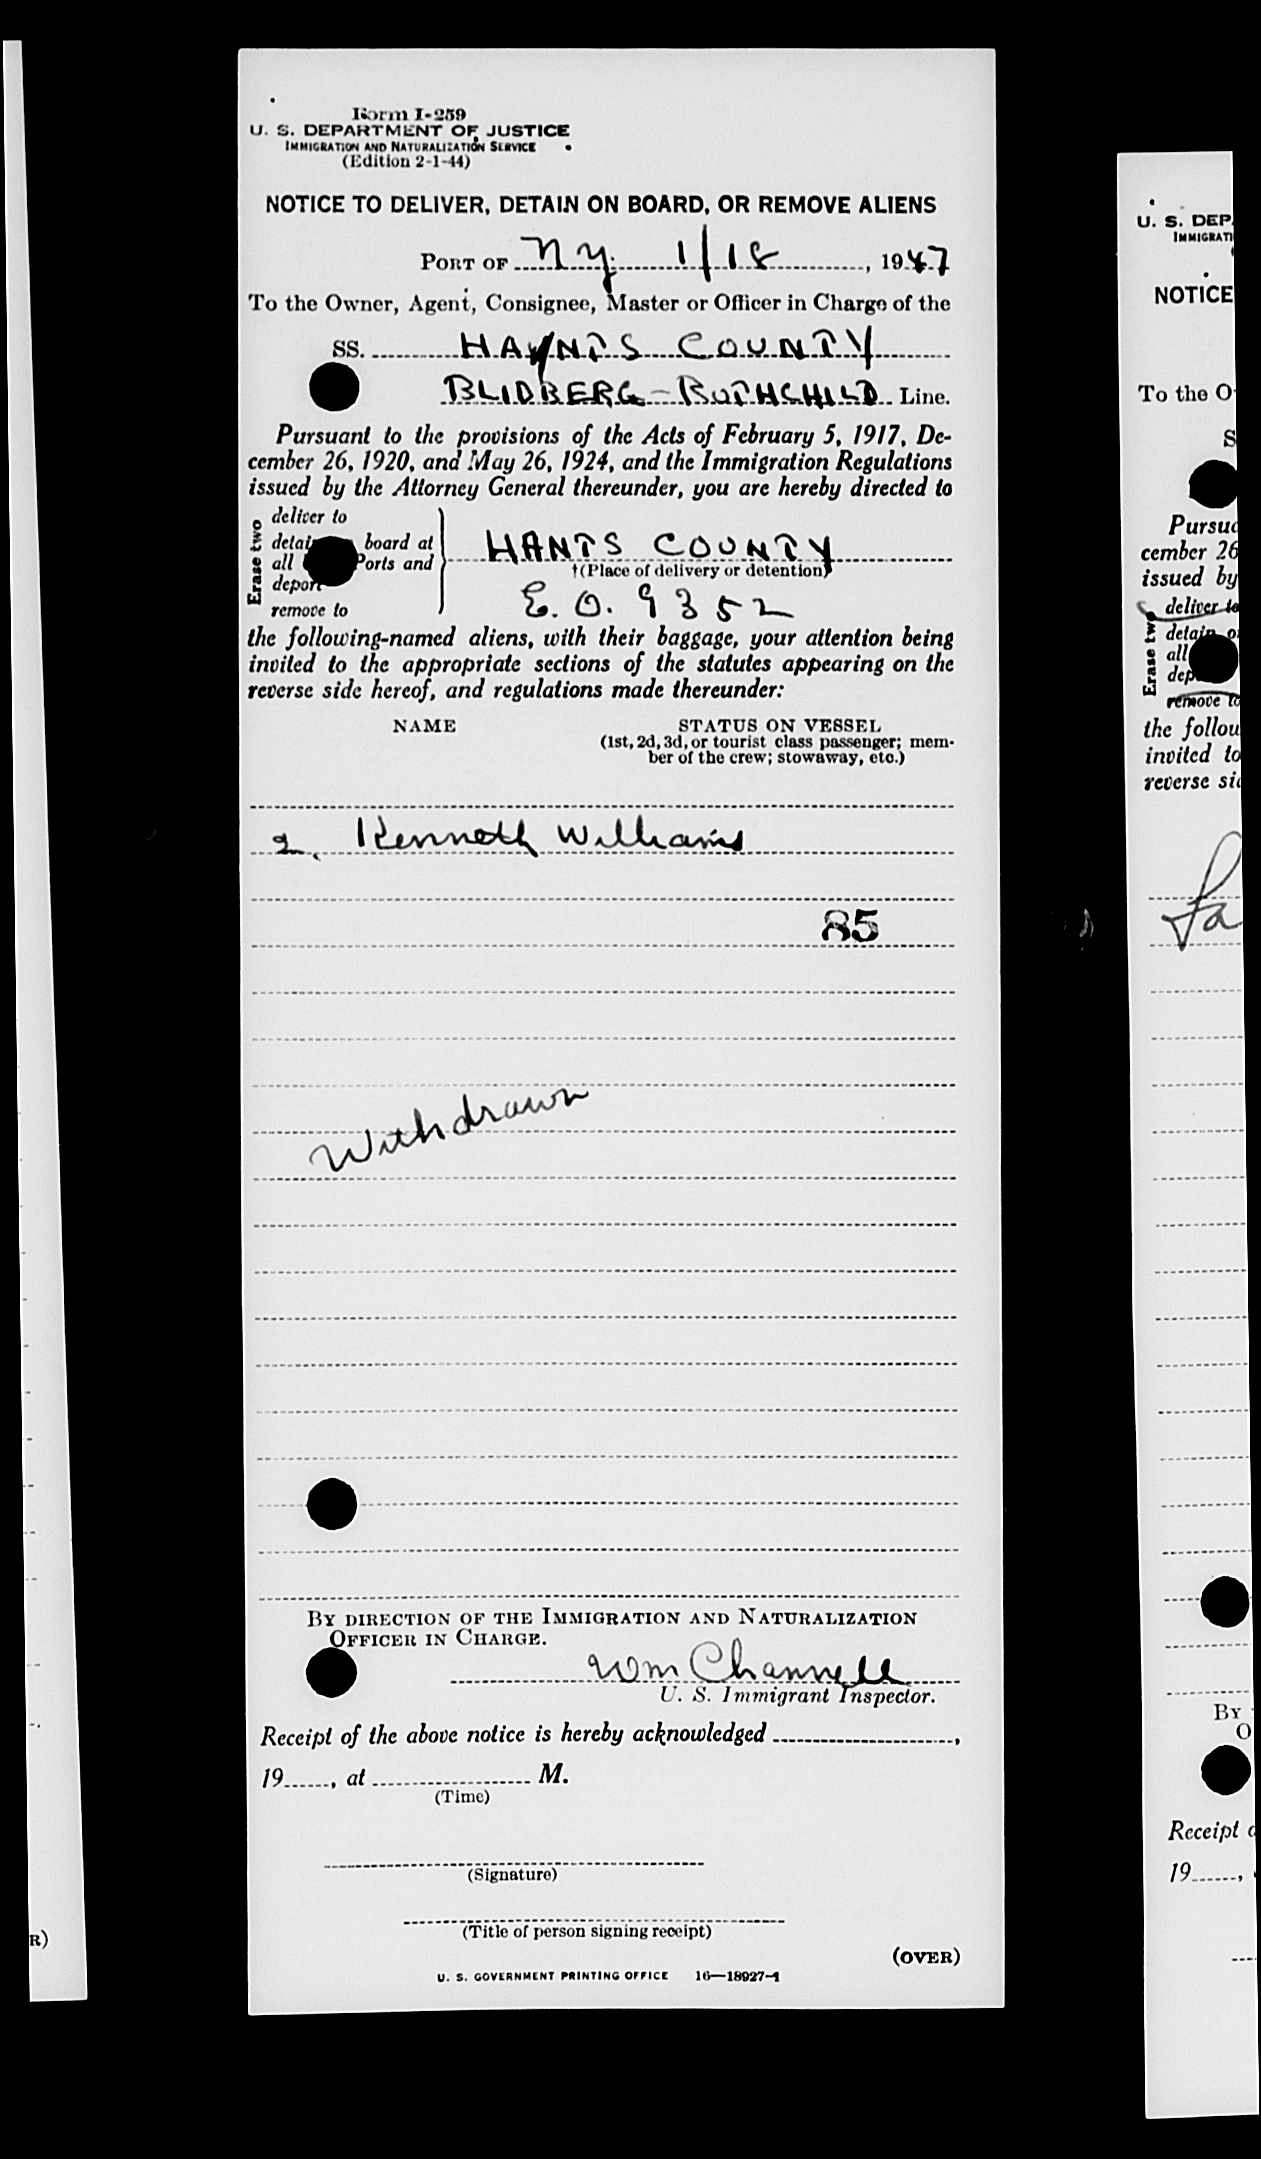 Form I-259
U. S. DEPARTMENT OF JUSTICE
IMMIGRATION AND NATURALIZATION SERVICE
(Edition 2-1-44)
NOTICE TO DELIVER, DETAIN ON BOARD, OR REMOVE ALIENS
PORT OF NY. 1/18, 1947
To the Owner, Agent, Consignee, Master or Officer in Charge of the
SS. HANTS COUNTY
BLIDBERG-ROTHCHILD Line.
Pursuant to the provisions of the Acts of February 5, 1917, De-
cember 26, 1920, and May 26, 1924, and the Immigration Regulations
issued by the Attorney General thereunder, you are hereby directed to
Erase two
deliver to
detain board at
all Ports and
deport
remove to
HANTS COUNTY
†(Place of delivery or detention)
E.O. 9352
the following-named aliens, with their baggage, your attention being
invited to the appropriate sections of the statutes appearing on the
reverse side hereof, and regulations made thereunder:
NAME STATUS ON VESSEL
(1st, 2d, 3d, or tourist class passenger; mem-
ber of the crew; stowaway, etc.)
2. Kenneth Williams
85
Withdrawn
BY DIRECTION OF THE IMMIGRATION AND NATURALIZATION
OFFICER IN CHARGE.
Wm Channell
U. S. Immigrant Inspector.
Receipt of the above notice is hereby acknowledged ,
19 , at M.
(Time)
(Signature)
(Title of person signing receipt)
(OVER)
U. S. GOVERNMENT PRINTING OFFICE 16—18927-1
R)
U. S. DEP
IMMIGRATI
NOTICE
To the O
S
Pursu
cember 26
issued by
Erase two
deliver to
detain o
all
dep
remove to
the follow
invited to
reverse si
BY
O
Receipt
19 ,